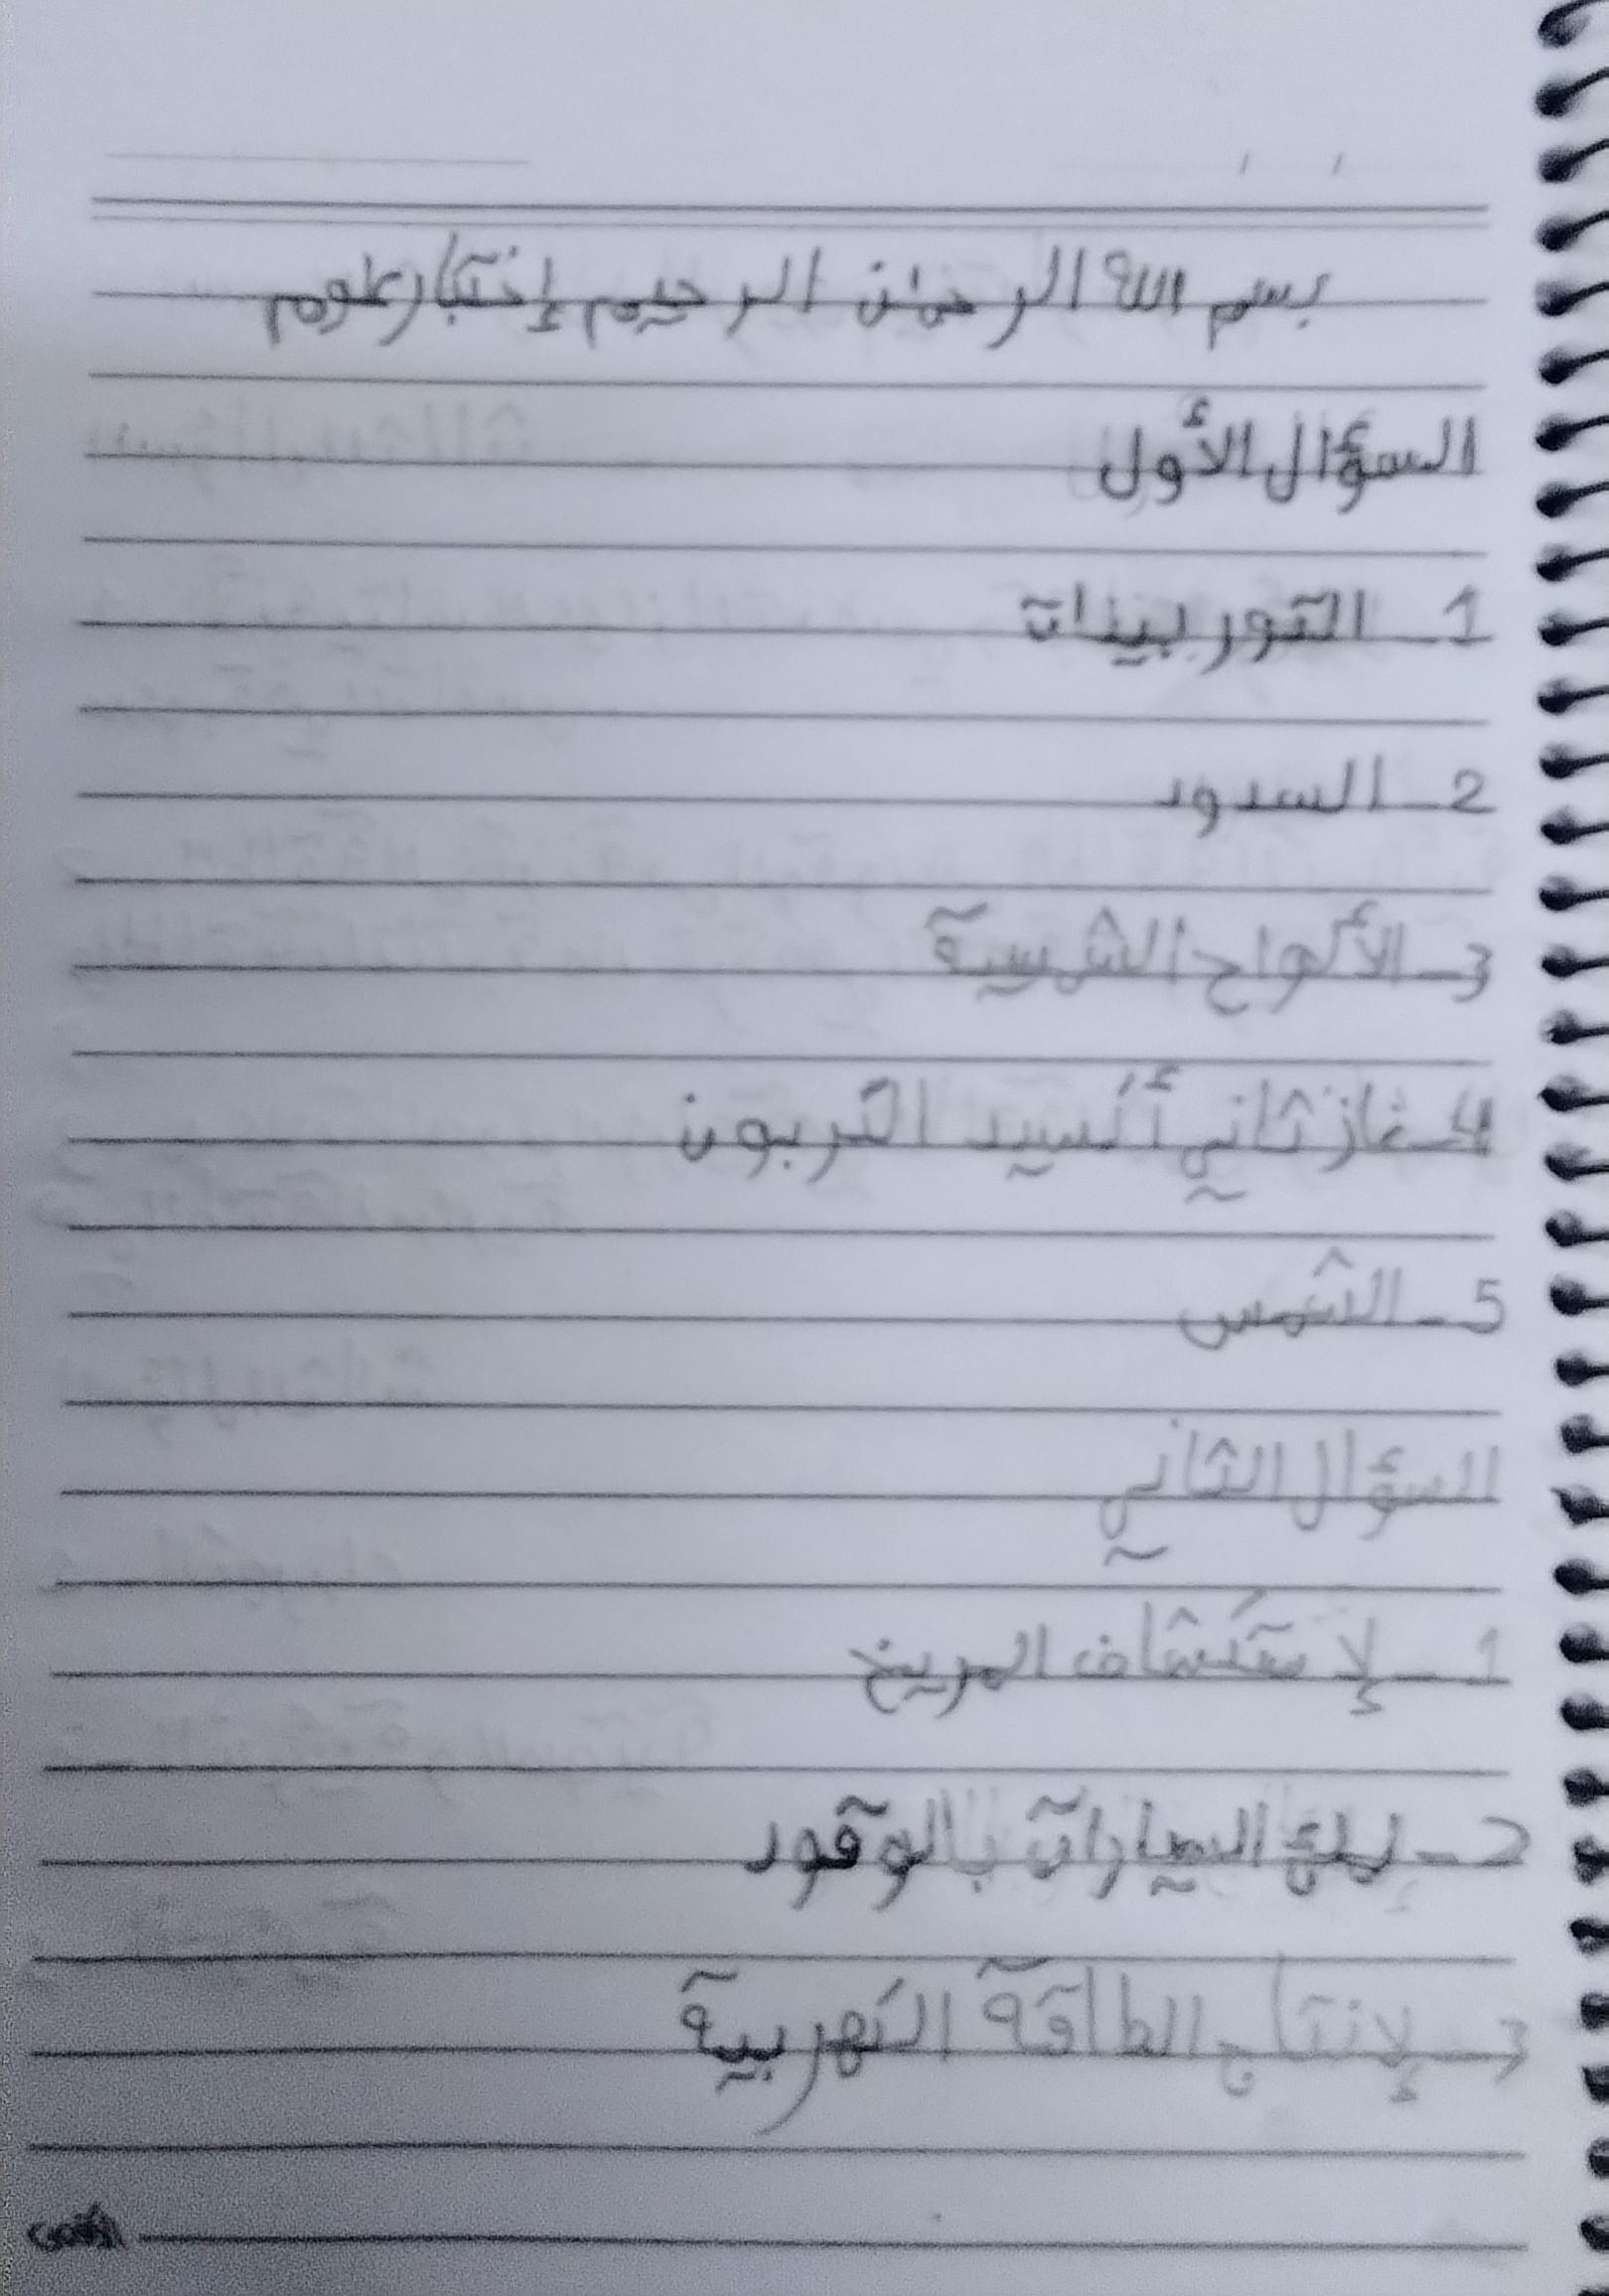 بسم الله الرحمان الرحيم إختبار علوم
السؤال الأول
1_ التوربينات
2_ السدود
3_ الألواح الشمسية
4_ غاز ثاني أكسيد الكربون
5_ الشمس
السؤال الثاني
1_ لإستكشاف المريخ
2_ لملئ السيارات بالوقود
3_ لإنتاج الطاقة الكهربية